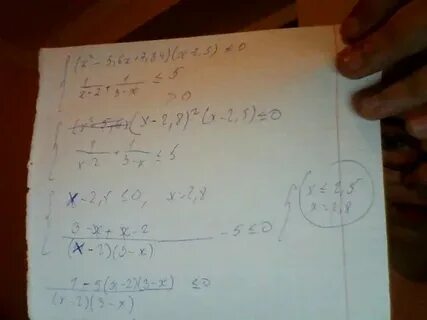 (x² - 5,6x + 7,84)(x - 2,5) ≤ 0
1/(x-2) + 1/(3-x) ≤ 5
>0
(x - 2,8)² (x - 2,5) ≤ 0
1/(x-2) + 1/(3-x) ≤ 5
x - 2,5 ≤ 0, x = 2,8
(3 - x + x - 2)/((x - 2)(3 - x)) - 5 ≤ 0
x ≤ 2,5
x = 2,8
(1 - 5(x-2)(3-x))/((x-2)(3-x)) ≤ 0